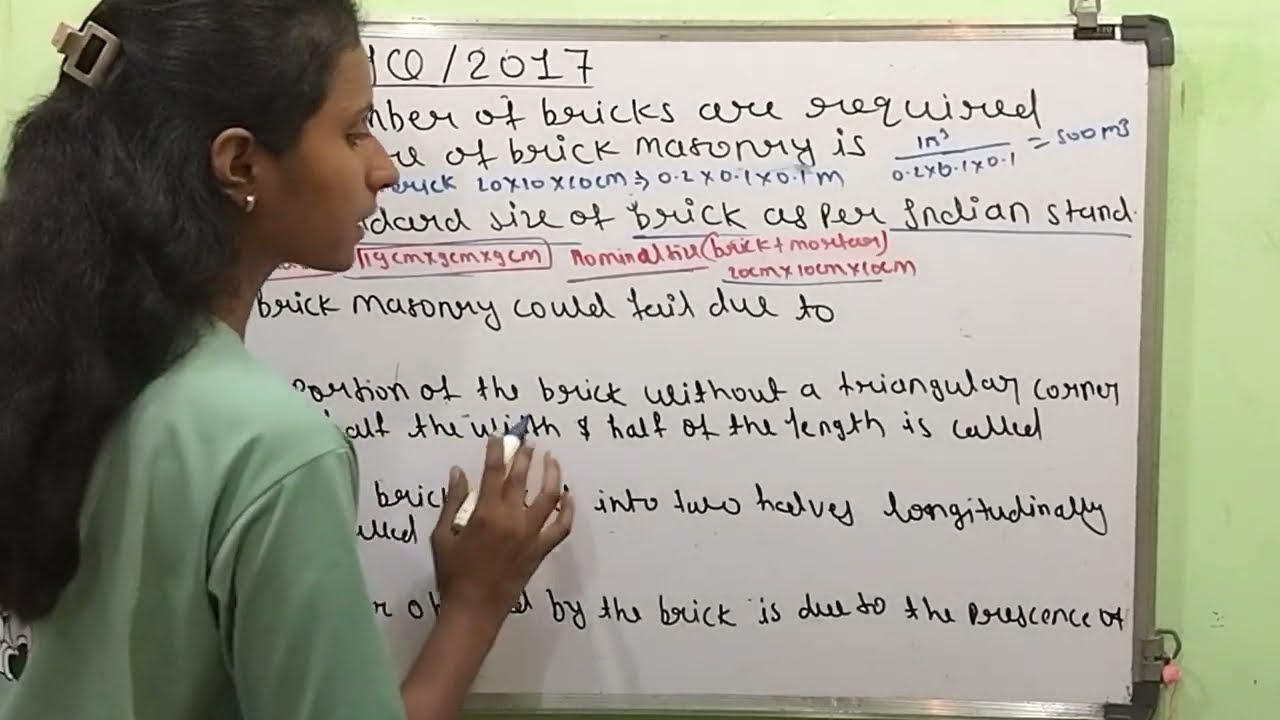 /2017
of bricks are required
of brick masonry is 1m³ / 0.2×0.1×0.1 = 500 m³
20×10×10cm ⇒ 0.2×0.1×0.1m
size of brick as per Indian stand.
19cm×9cm×9cm Nominal size (brick + mortar)
20cm×10cm×10cm
brick masonry could fail due to
portion of the brick without a triangular corner
half the width & half of the length is called
brick into two halves longitudinally
by the brick is due to the prescence of